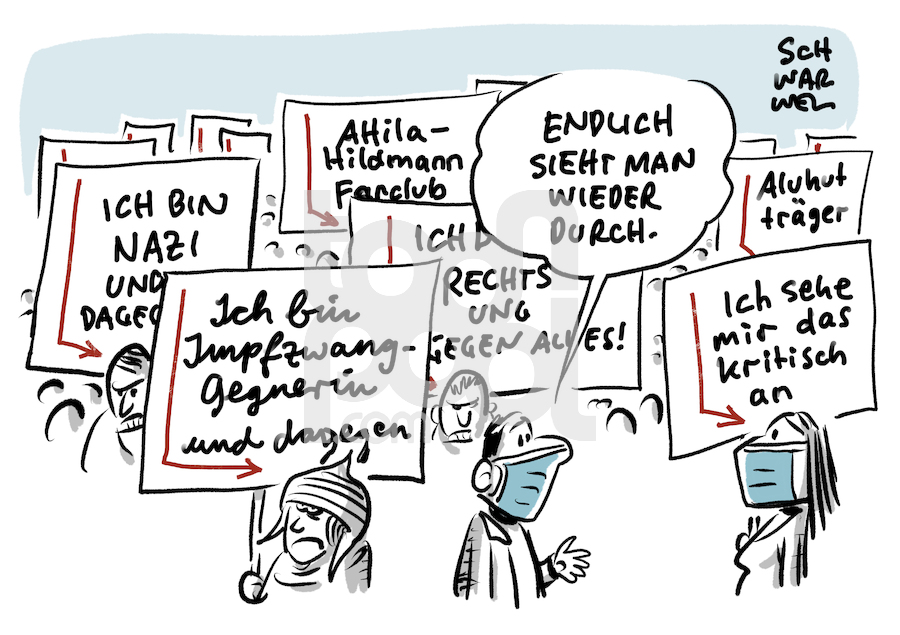 SCH
WAR
WEL
ENDLICH
SIEHT MAN
WIEDER
DURCH.
Attila-
Hildmann
Fanclub
Aluhut
träger
ICH BIN
NAZI
UND
DAGEG
ICH B
RECHTS
UND
GEGEN ALLES!
Ich bin
Impfzwang-
Gegnerin
und dagegen
Ich sehe
mir das
kritisch
an
toon
pool
.com